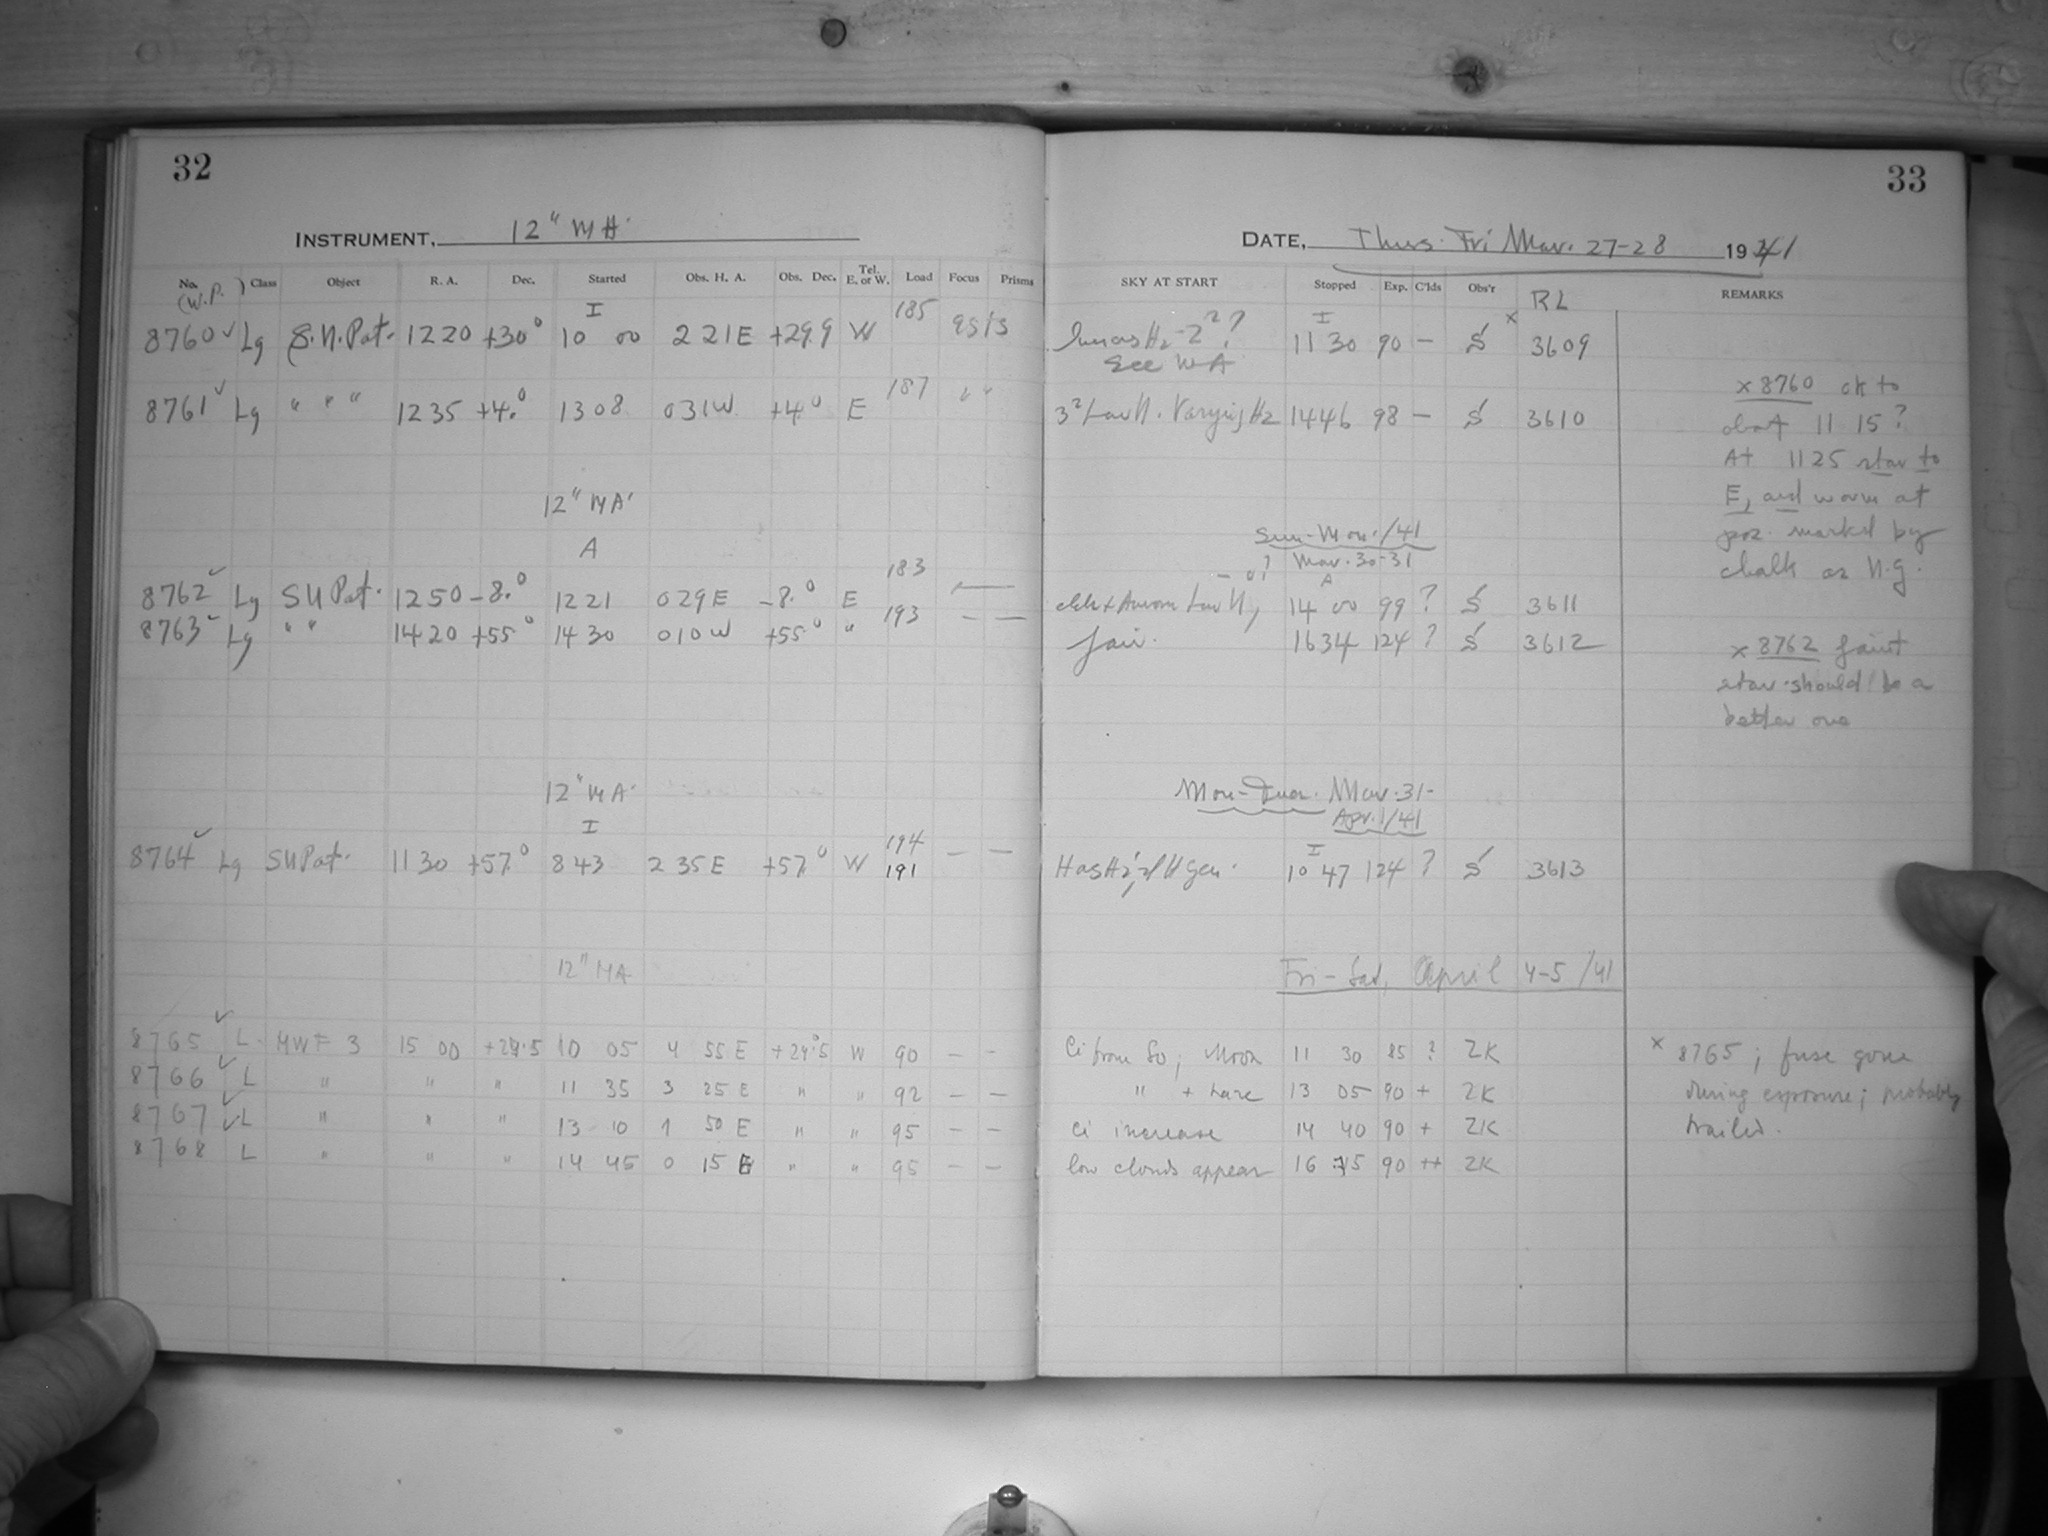 32
INSTRUMENT, 12" MA.
No. (W.P.) Class Object R. A. Dec. Started Obs. H. A. Obs. Dec. Tel. E. or W. Load Focus Prisms
I
8760 ✓ Lg S.H.Pat. 12 20 +30° 10 00 2 21 E +29.9 W 185
8761 ✓ Lg " " " 12 35 +4.° 13 08 0 31 W +4.° E 187 " "
12" MA.
A
8762 ✓ Lg SH Pat. 12 50 -8.° 12 21 0 29 E -8.° E 183 —
8763 ✓ Lg " " 14 20 +55° 14 30 0 10 W +55° " 193 — —
12" MA.
I
8764 ✓ Lg SH Pat. 11 30 +57.° 8 43 2 35 E +57.° W 194 191 — —
12" MA
8765 ✓ L. MWF 3 15 00 +29.5 10 05 4 55 E +29.5 W 90 — –
8766 ✓ L " " " 11 35 3 25 E " " 92 — —
8767 ✓ L " " " 13 10 1 50 E " " 95 — —
8768 ✓ L " " " 14 45 0 15 E " " 95 — —
33
DATE, Thurs. Fri Mar. 27-28 1941
SKY AT START Stopped Exp. C'lds Obs'r RL REMARKS
I
See WA 11 30 90 — S x 3609
Low H. Varying Hz 14 46 98 — S 3610
x 8760 ok to
11 15?
At 11 25 star to
E, and worm at
pos. marked by
chalk as N.G.
Sun-Mon./41
Mar. 30-31
A
Aurora Low H, 14 00 99 ? S 3611
fair. 16 34 124 ? S 3612
x 8762 faint
star should be a
better one
Mon-Tues. Mar. 31-
Apr. 1/41
I
Has Hz, gen. 10 47 124 ? S 3613
Fri-Sat, April 4-5/41
Ci from So; Moon 11 30 85 ? ZK
" + haze 13 05 90 + ZK
Ci increase 14 40 90 + ZK
low clouds appear 16 15 90 ++ ZK
x 8765; fuse gone
during exposure; probably
trailed.